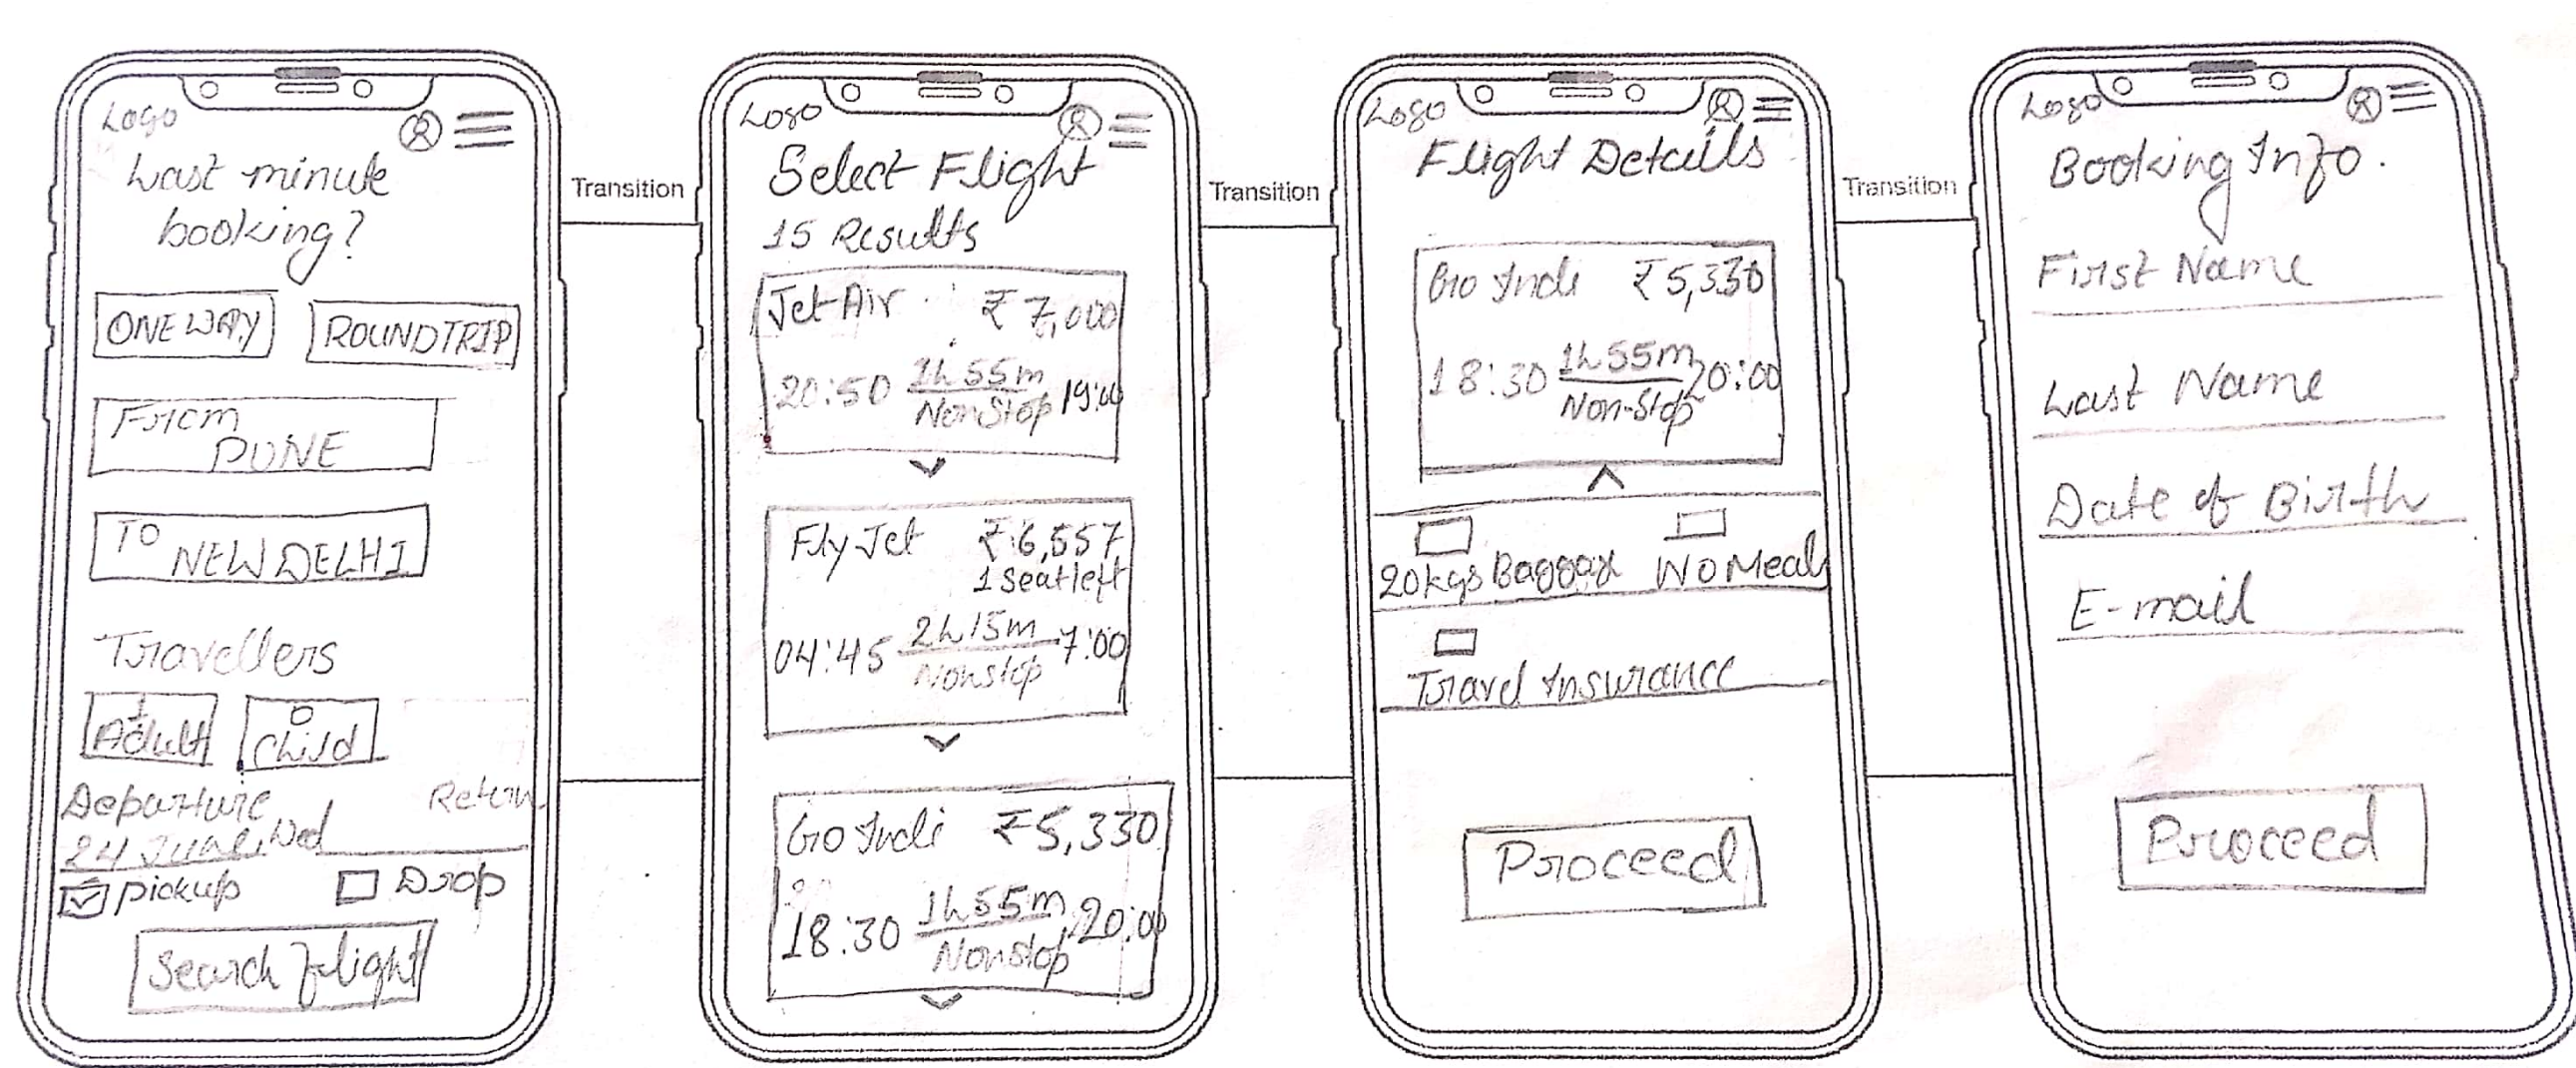 Logo
Last minute
booking?
ONE WAY ROUNDTRIP
From
PUNE
TO
NEW DELHI
Travellers
1 0
Adult Child
Departure Return
24 June, Wed
pickup Drop
Search flight
Transition
Logo
Select Flight
15 Results
Jet Air ₹ 7,000
20:50 1h 55m 19:00
Non Stop
Fly Jet ₹ 6,557
1 Seat left
04:45 2h 15m 7:00
Nonstop
Go Indi ₹5,330
18:30 1h 55m 20:00
Nonstop
Transition
Logo
Flight Details
Go Indi ₹5,330
18:30 1h 55m 20:00
Non-Stop
20kgs Baggage No Meal
Travel Insurance
Proceed
Transition
Logo
Booking Info.
First Name
Last Name
Date of Birth
E-mail
Proceed